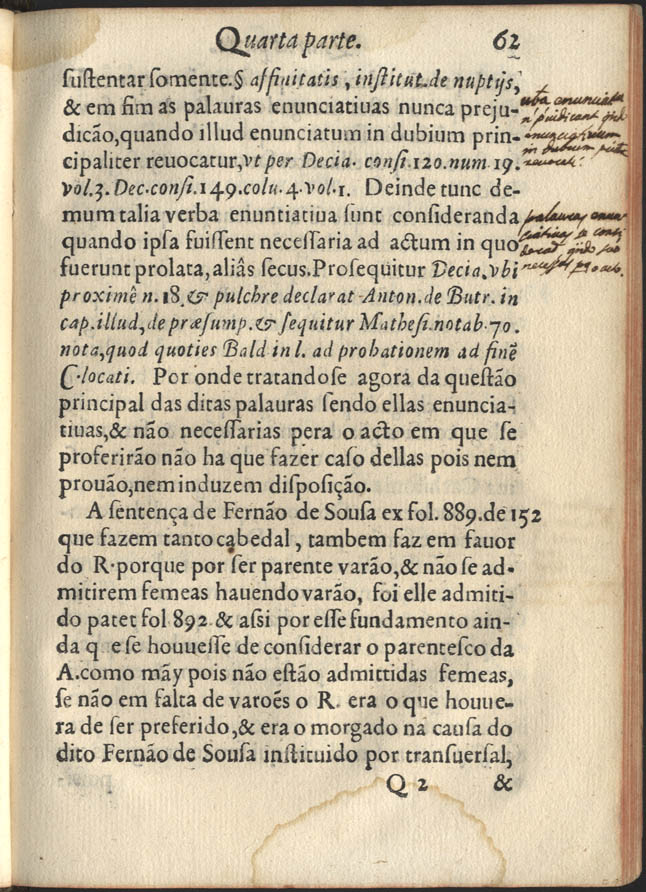 Quarta parte. 62
ſuſtentar ſomente.§ affinitatis, inſtitut.de nuptijs,
& em fim as palauras enunciatiuas nunca preju-
dicão,quando illud enunciatum in dubium prin-
cipaliter reuocatur,vt per Decia. conſi.120.num.19.
vol.3. Dec.conſi.149.colu.4.vol.1. Deinde tunc de-
mum talia verba enuntiatiua ſunt conſideranda
quando ipſa fuiſſent neceſſaria ad actum in quo
fuerunt prolata, aliâs ſecus.Proſequitur Decia.vbi
proximê n.18.& pulchre declarat Anton.de Butr. in
cap.illud,de præſump.& ſequitur Matheſi.notab.70.
nota,quod quoties Bald in l. ad probationem ad finẽ
C.locati. Por onde tratandoſe agora da queſtão
principal das ditas palauras ſendo ellas enuncia-
tiuas,& não neceſſarias pera o acto em que ſe
proferirão não ha que fazer caſo dellas pois nem
prouão,nem induzem diſpoſição.
A ſentença de Fernão de Souſa ex fol. 889.de 152
que fazem tanto cabedal, tambem faz em fauor
do R.porque por ſer parente varão,& não ſe ad-
mitirem femeas hauendo varão, foi elle admiti-
do patet fol 892.& aſsi por eſſe fundamento ain-
da q̃ e ſe houueſſe de conſiderar o parenteſco da
A.como mãy pois não eſtão admittidas femeas,
ſe não em falta de varoẽs o R. era o que houue-
ra de ſer preferido,& era o morgado na cauſa do
dito Fernão de Souſa inſtituido por tranſuerſal,
Q 2 &
verba enunciatiua
in dubium
palauras enun-
ciatiuas se